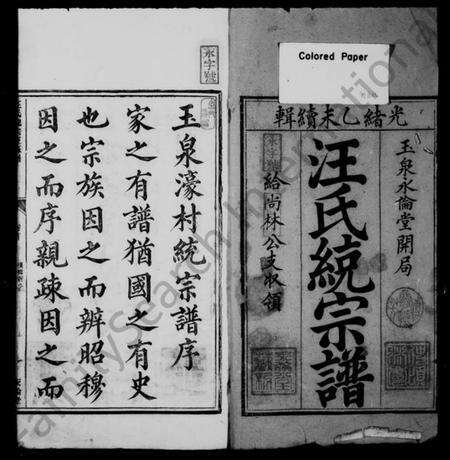 Colored Paper
光緒乙未續輯
玉泉永倫堂開局
汪氏統宗譜
給尚林公支收領
永字號
玉泉濠村統宗譜序
家之有譜猶國之有史
也宗族因之而辨昭穆
因之而序親疎因之而
FamilySearch International